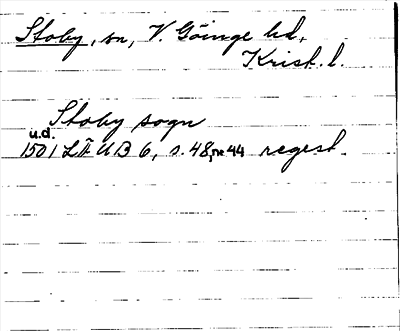 Stoby, sn, V. Göinge hd,
Krist. l.
Stoby sogn
u.d.
1501 LÄUB 6, s. 48, nr 44 regest.